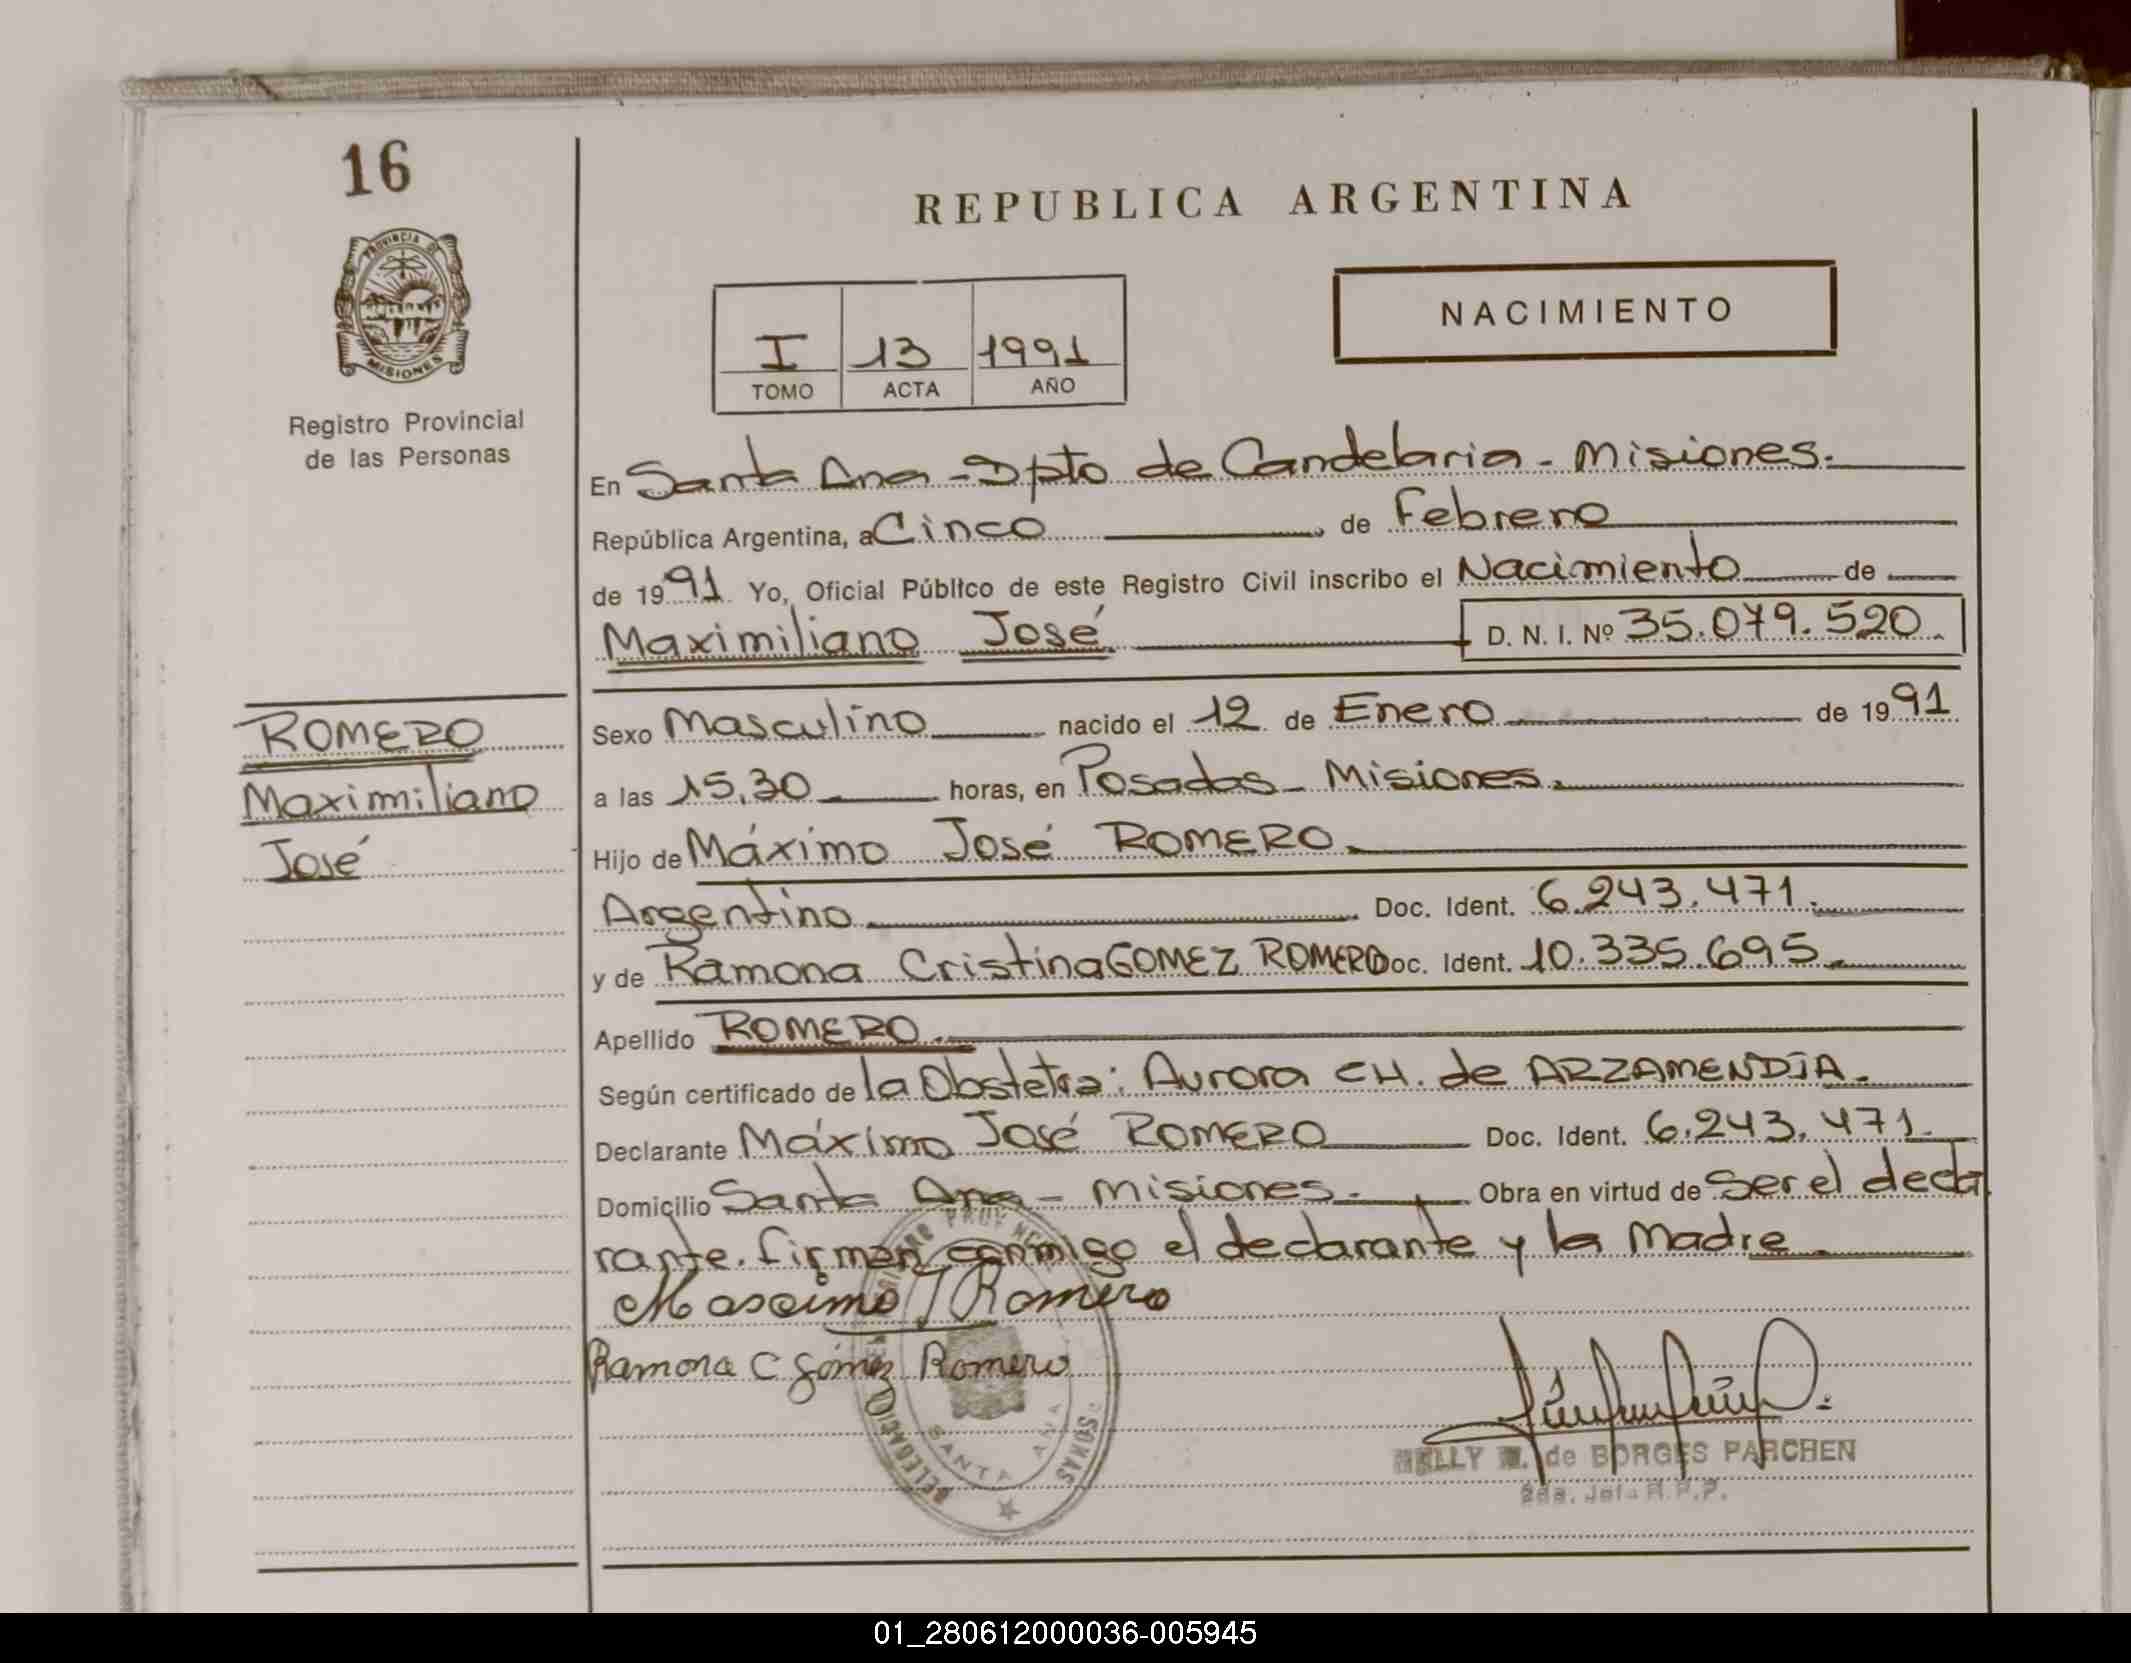 16
PROVINCIA DE
MISIONES
Registro Provincial
de las Personas
ROMERO
Maximiliano
José
REPUBLICA ARGENTINA
NACIMIENTO
I 13 1991
TOMO ACTA AÑO
En Santa Ana - Dpto de Candelaria - Misiones.
República Argentina, a Cinco, de Febrero
de 1991 Yo, Oficial Público de este Registro Civil inscribo el Nacimiento de
Maximiliano José D. N. I. Nº 35.079.520.
Sexo Masculino nacido el 12 de Enero de 1991
a las 15,30 horas, en Posadas - Misiones.
Hijo de Máximo José ROMERO.
Argentino. Doc. Ident. 6.243.471.
y de Ramona Cristina GOMEZ ROMERO Doc. Ident. 10.335.695.
Apellido ROMERO.
Según certificado de la Obstetra: Aurora CH. de ARZAMENDIA.
Declarante Máximo José ROMERO Doc. Ident. 6.243.471.
Domicilio Santa Ana - Misiones. Obra en virtud de Ser el decla
rante. firman conmigo el declarante y la Madre.
Massimo J Romero
Ramona C Gómez Romero
DELEGACION
SANTA ANA
NELLY de BORGES PARCHEN
R.P.P.
01_280612000036-005945